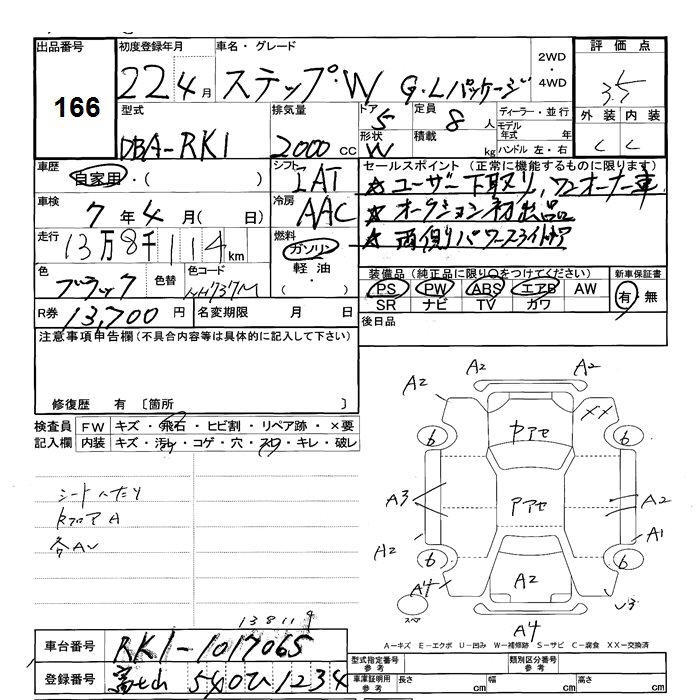 出品番号 初度登録年月 車名・グレード 2WD・4WD 評価点
166 22 4月 ステップ・W G・Lパッケージ 3.5
型式 排気量 ドア 5 定員 8人 ディーラー・並行 外装 内装
DBA-RK1 2000cc 形状 W 積載 kg モデル年式 年式 ハンドル 左・右 C C
車歴 自家用・( ) シフト IAT セールスポイント (正常に機能するものに限ります)
☆ユーザー下取り、ワンオーナー車
車検 7年4月( 日) 冷房 AAC ☆オークション初出品
走行 13万8千114km 燃料 ガソリン 軽油・( ) ☆両側パワースライドドア
色 ブラック 色替 色コード NH737M
装備品 (純正品に限り○をつけてください) 新車保証書
PS PW ABS エアB AW 有・無
SR ナビ TV カワ
R券 13,700円 名変期限 月 日 後日品
注意事項申告欄 (不具合内容等は具体的に記入して下さい)
修復歴 有 [箇所 ]
検査員記入欄 FW キズ・飛石・ヒビ割・リペア跡・×要
内装 キズ・汚れ・コゲ・穴・スリ・キレ・破レ
シートへたり
Rフロア A
各AU
A2 A2
A2 A2 XX
6 アセ 6
A3 アセ A2
A2 A1
6 A2 6
A4 U3
スペア A4
A-キズ E-エクボ U-凹み W-補修跡 S-サビ C-腐食 XX-交換済
138119
車台番号 RK1-1017065
登録番号 540ひ1234
型式指定番号 参考 類別区分番号 参考
車庫証明用 参考 長さ cm 幅 cm 高さ cm